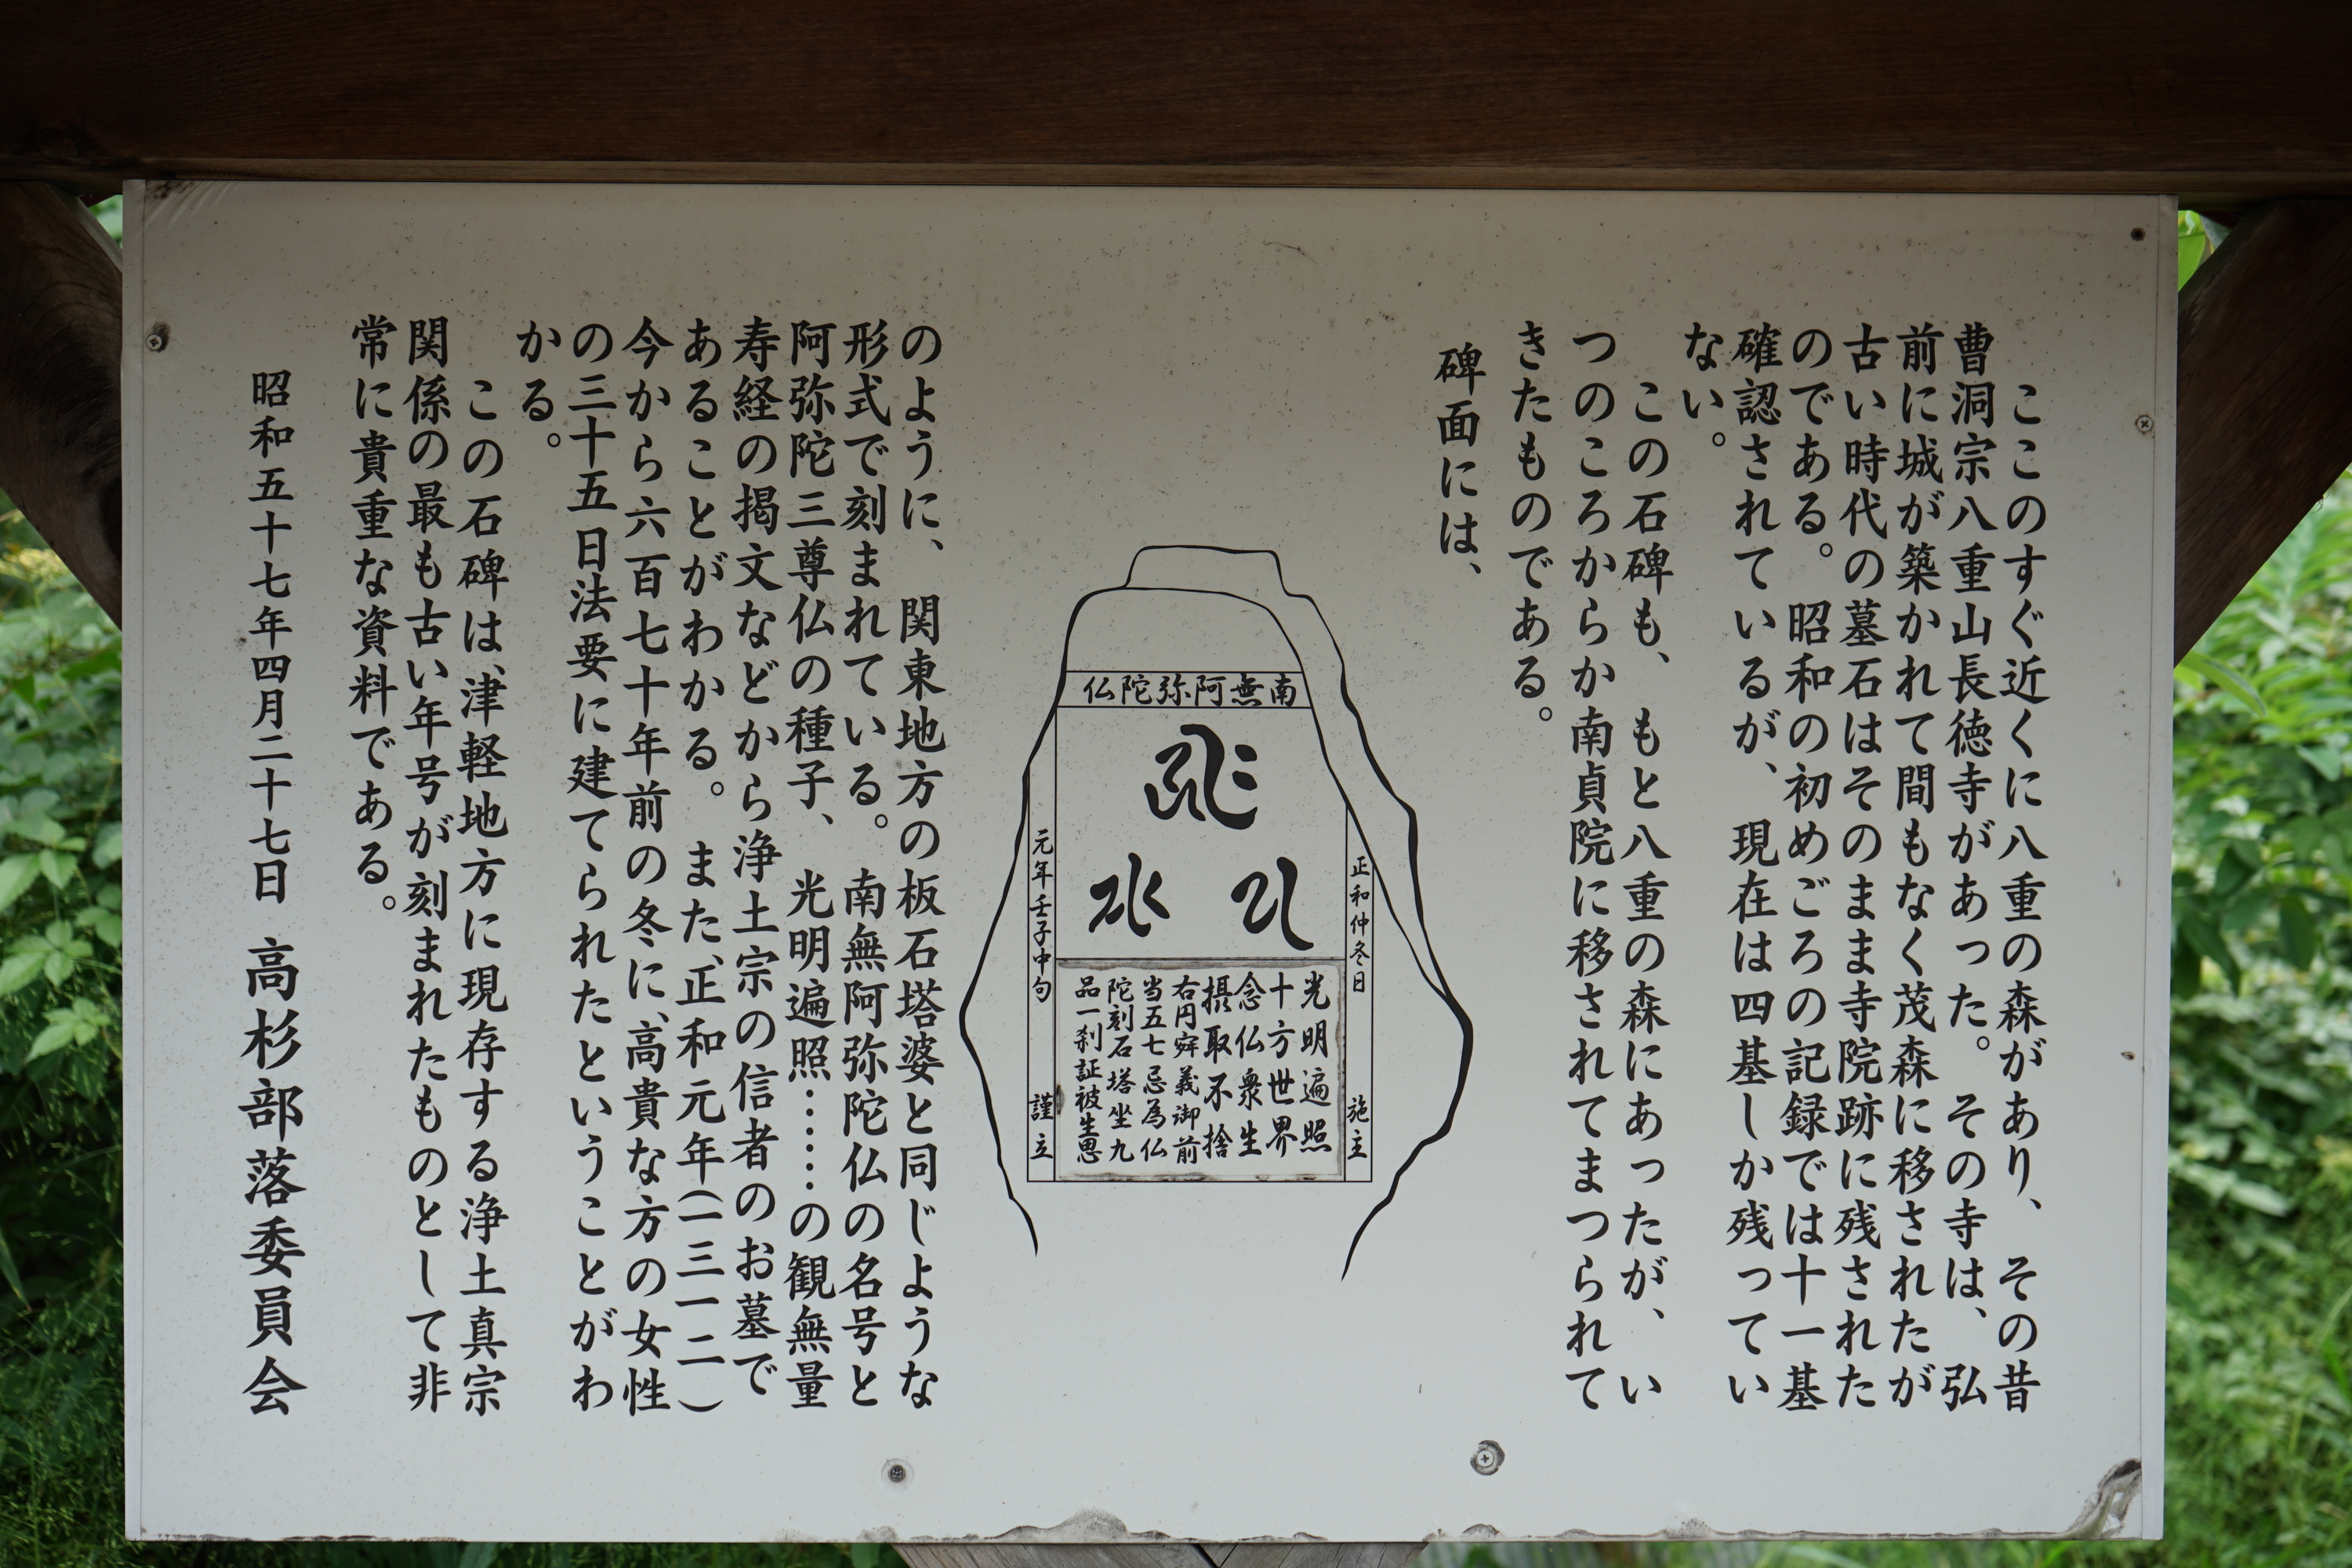 ここのすぐ近くに八重の森があり、その昔
曹洞宗八重山長徳寺があった。その寺は、弘
前に城が築かれて間もなく茂森に移されたが
古い時代の墓石はそのまま寺院跡に残された
のである。昭和の初めごろの記録では十一基
確認されているが、現在は四基しか残ってい
ない。
この石碑も、もと八重の森にあったが、い
つのころからか南貞院に移されてまつられて
きたものである。
碑面には、
南無阿弥陀仏
正和仲冬日 施主
光明遍照
十方世界
念仏衆生
摂取不捨
右円穽義御前
当五七忌為仏
陀刻石塔坐九
品一刹証被生思
元年壬子中旬 謹立
のように、関東地方の板石塔婆と同じような
形式で刻まれている。南無阿弥陀仏の名号と
阿弥陀三尊仏の種子、光明遍照……の観無量
寿経の掲文などから浄土宗の信者のお墓で
あることがわかる。また、正和元年(一三一二)
今から六百七十年前の冬に、高貴な方の女性
の三十五日法要に建てられたということがわ
かる。
この石碑は、津軽地方に現存する浄土真宗
関係の最も古い年号が刻まれたものとして非
常に貴重な資料である。
昭和五十七年四月二十七日 高杉部落委員会